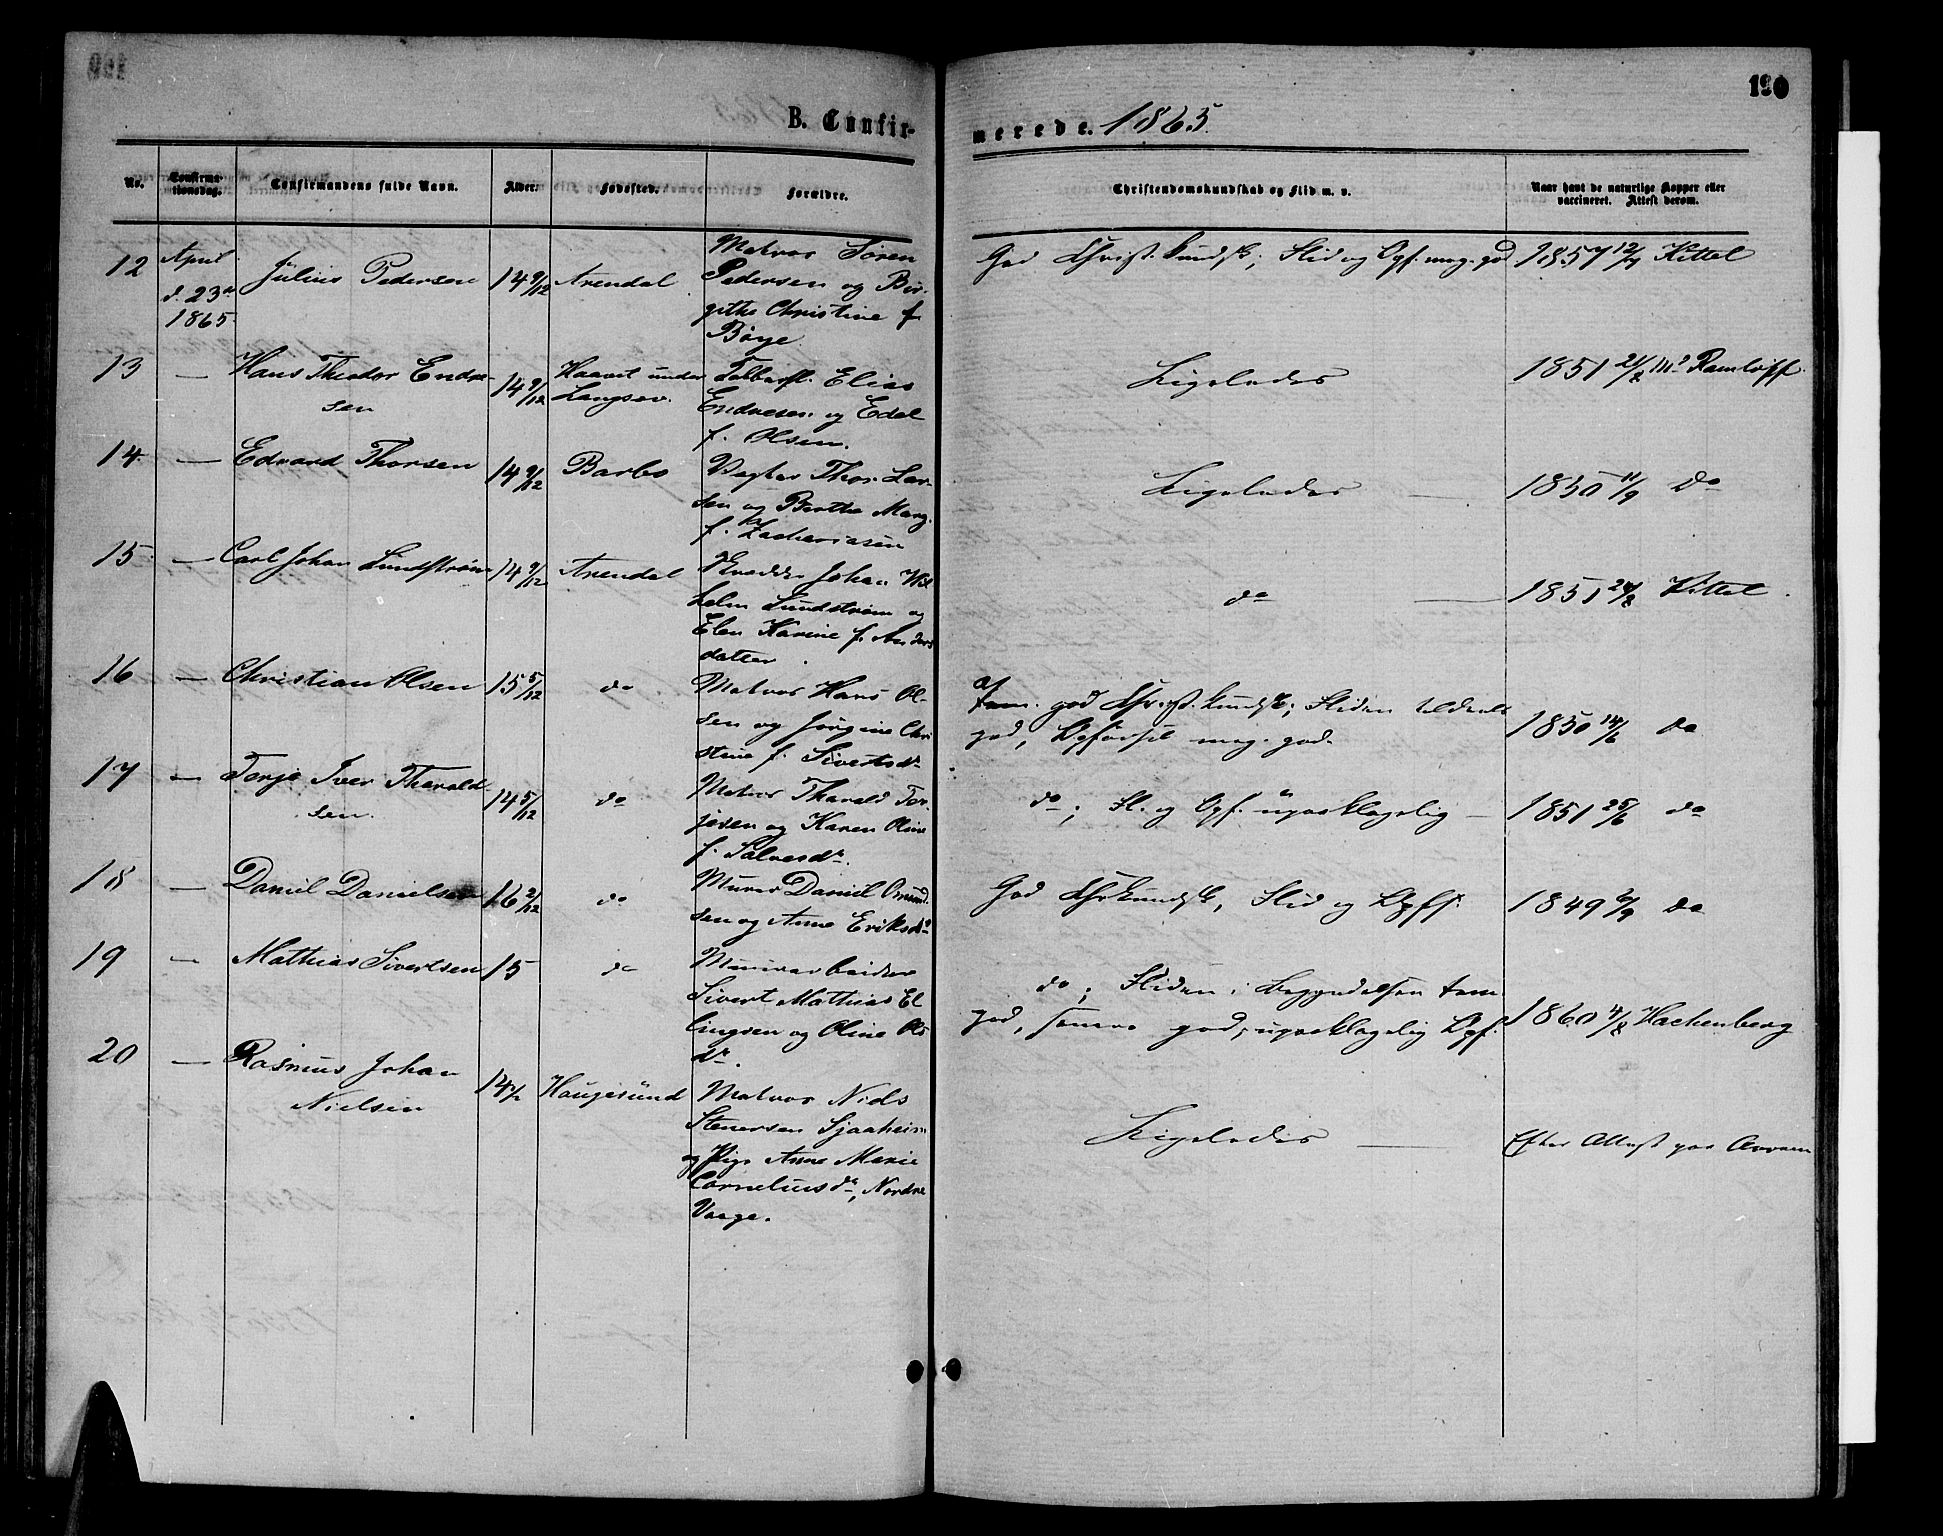 190
B. Confir-
merede. 1865.
Nr.
Confirma-
tionsdag.
Confirmandens fulde Navn.
Alder.
Fødested.
Forældre.
Christendomskundskab og Flid m. v.
Naar havt de naturlige Kopper eller
vaccineret. Attest derom.
12 April d. 23de 1865. Julius Pedersen 14 9/12 Arendal
Matros Søren
Pedersen og Bir-
githe Christine f.
Bøye.
God Christ. kundsk; Flid og Opf. meg. god 1857 12/9 Kittel
13 — Hans Theodor Endre-
sen 14 9/12 Haavet under
Langsæv.
Elias
Endresen og Edel
f. Olsen.
Ligeledes 1851 21/8 Ramløff
14 — Edvard Thorsen 14 9/12 Barbo
Vægter Thor Lar-
sen og Berthe Marg.
f. Zachariasen
Ligeledes — 1850 11/9 do
15 — Carl Johan Lundstrøm 14 9/12 Arendal
Johan Wil
helm Lundstrøm og
Elen Karine f. Anders
datter.
do — 1851 24/8 Kittel.
16 — Christian Olsen 15 5/12 do
Matros Hans Ol-
sen og Jørgine Chri
stine f. Sivertsdr
tem. god Christ. kundsk; Fliden
god, Opførsel meg. god. 1850 14/6 do
17 — Terje Iver Tharald-
sen. 14 5/12 do
Matros Tharald Ter-
jesen og Karen Oline
f. Salvesdr.
do; Fl. og Opf. upaaklagelig — 1851 25/6 do
18 — Daniel Danielsen 16 2/12 do
Murer Daniel Osmund-
sen og Anne Eriksdr
God Chr kundsk, Flid og Opf. 1849 do
19 — Mathias Sivertsen 15 do
Murerarbeider
Sivert Mathias El
lingsen og Oline Ols
dr.
do; Fliden i Begyndelsen tem.
god, senere god, upaaklagelig Opf. 1860 4/8 Hachenberg
20 — Rasmus Johan
Nielsen 14 1/2 Haugesund
Matros Niels
Stenersen Sjaaheim
og Pige Anne Marie
Corneliusdr, Nordre
Vaage.
Ligeledes — Efter Attest paa Armen